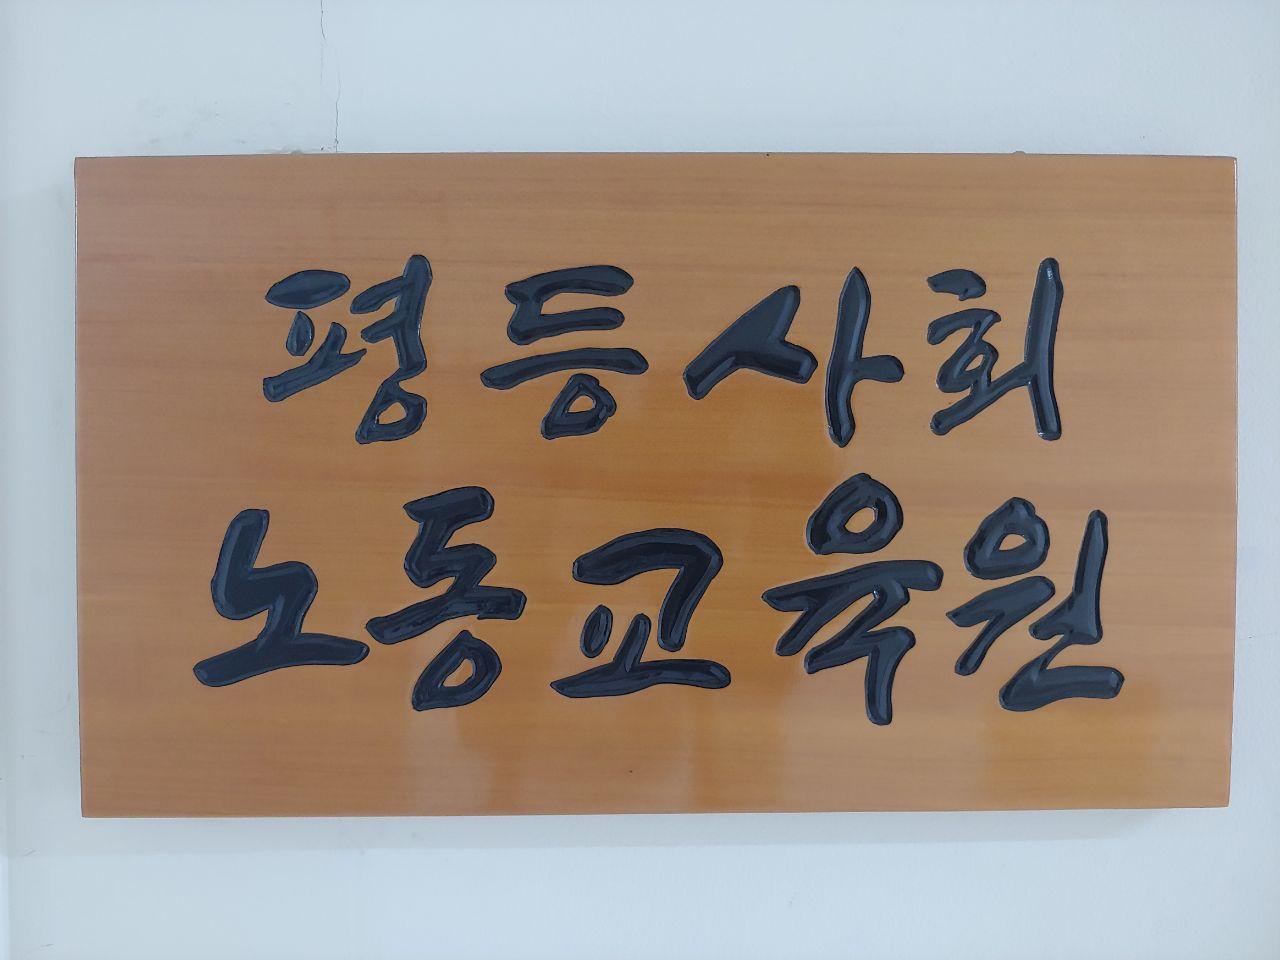 평등사회
노동교육원